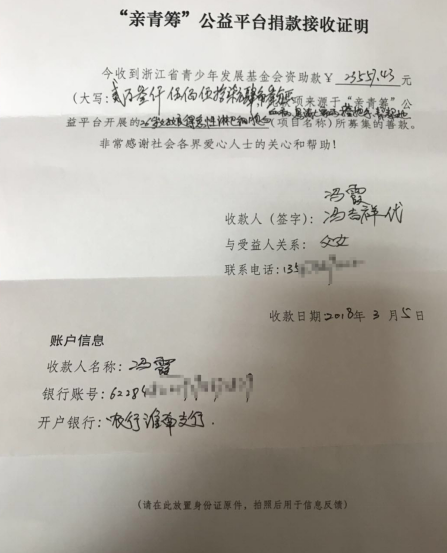 “亲青筹”公益平台捐款接收证明
今收到浙江省青少年发展基金会资助款￥23557.43元
(大写:贰万叁仟伍佰伍拾柒 款项来源于“亲青筹”公
益平台开展的 (项目名称)所募集的善款。
非常感谢社会各界爱心人士的关心和帮助!
冯霞
收款人(签字):冯吉祥代
与受益人关系:父女
联系电话:135
收款日期2018年3月5日
账户信息
收款人名称:冯霞
银行账号:62284
开户银行:农行 支行.
(请在此放置身份证原件,拍照后用于信息反馈)